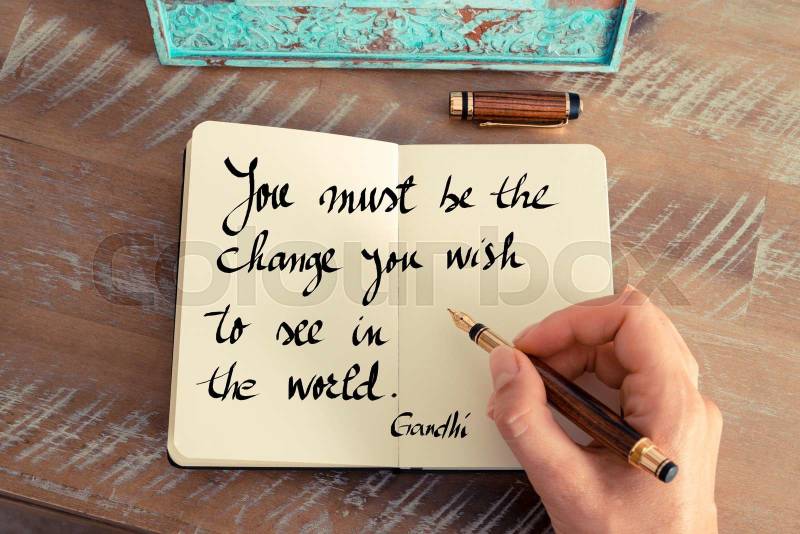 You must be the
change you wish
to see in
the world.
Gandhi
colourbox